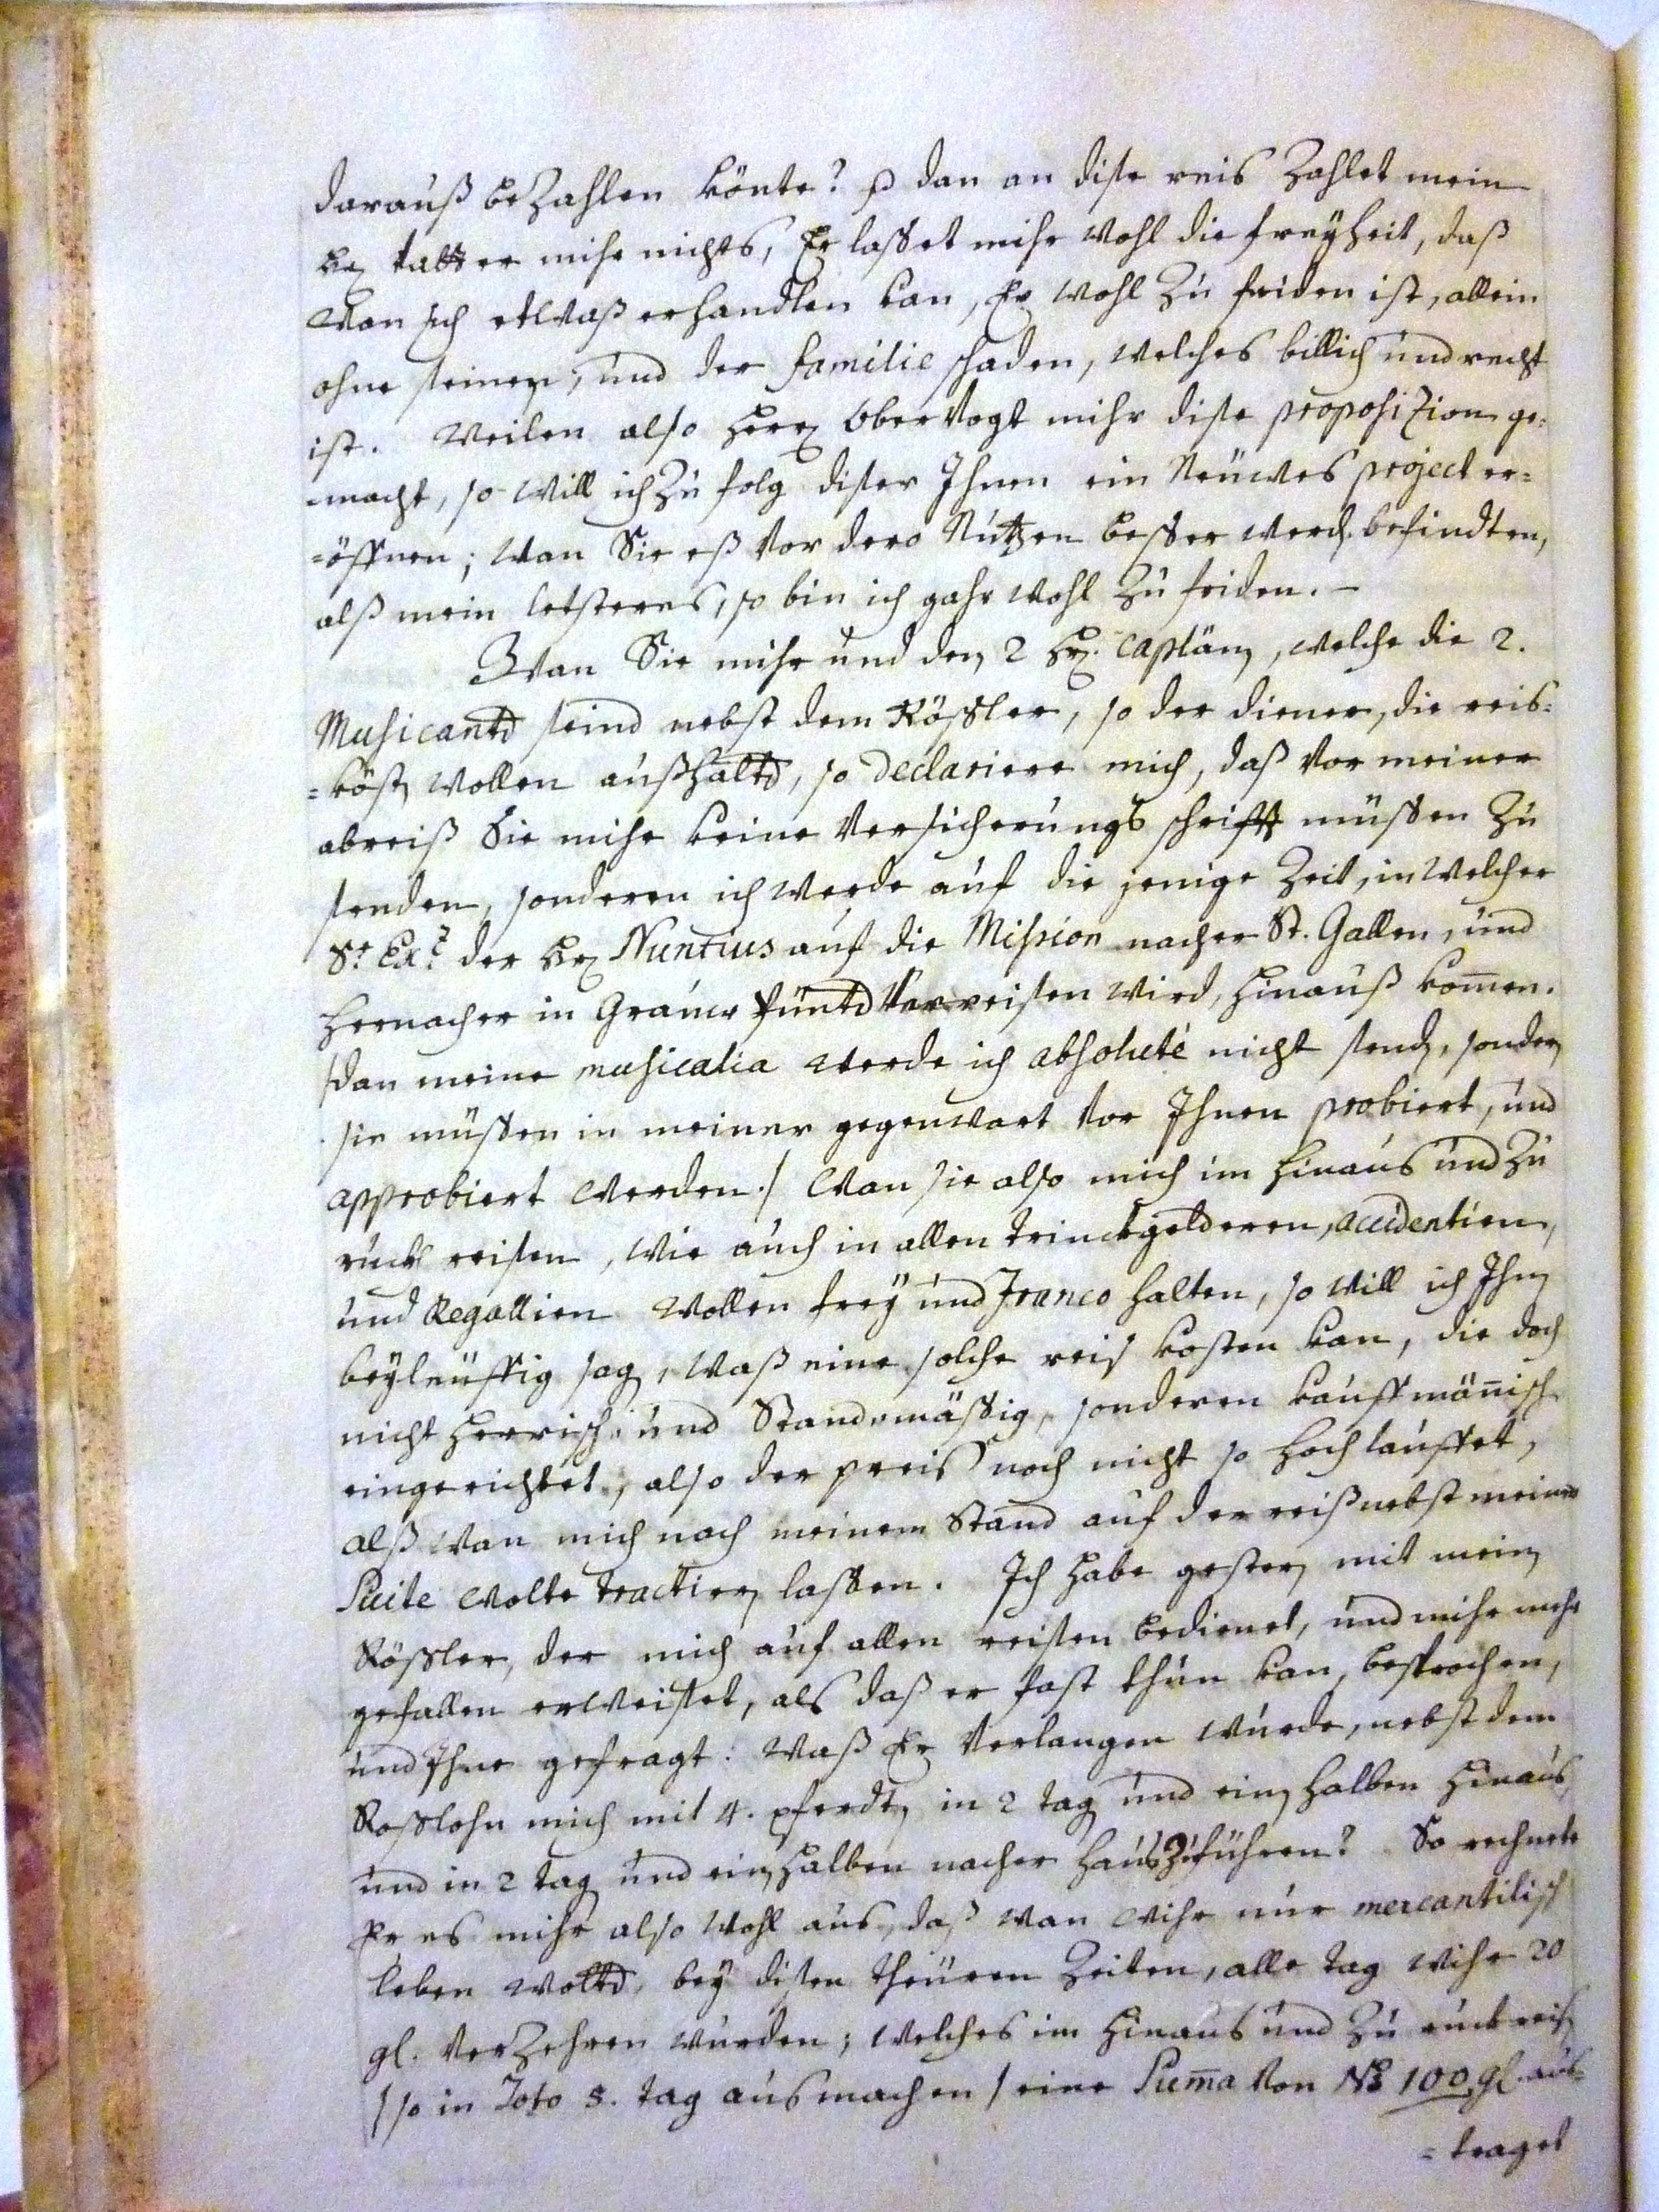 darauß bezahlen könte? dan an dise reis zahlet mein
Hr Vatter mihr nichts, Er lasset mihr wohl die freyheit, daß
wan ich etwaß erhandlen kan, Er wohl zu friden ist, allein
ohne seinen, und der familie schaden, welches billich und recht
ist. Weilen also Herr Obervogt mihr dise proposition ge-
-macht, so will ich zu folg diser Ihnen ein Neuwes project er=
=öffnen; wan Sie eß vor dero Nutzen besser werd. befindten,
alß mein letsteres, so bin ich gahr wohl zu friden. -
Wan Sie mihr und den 2 Hr. Caplän, welche die 2.
Musicanten seind nebst dem Rössler, so der diener, die reis=
=kösten wollen außhalten, so declariere mich, daß vor meiner
abreiß Sie mihr keine Versicherungs schrifft müssen zu
senden, sonderen ich werde auf die jenige Zeit, in welcher
Sr. Exz. der Hr Nuntius auf die Mission nacher St. Gallen, und
hernacher in Grauw Püntd verreisen wird, hinauß kommen.
/dan meine musicalia werde ich absoluté nicht senden, sondern
sie müssen in meiner gegenwart vor Ihnen probiert, und
approbiert werden./ Wan sie also mich im hinaus und zu
ruck reisen, wie auch in allen trinckgelderen, accidentien,
und Regallien wollen frey und franco halten, so will ich Ihnen
beyleuffig sagen, waß eine solche reis kosten kan, die doch
nicht herrisch, und Standsmässig, sonderen kauffmännisch
eingerichtet, also der preis noch nicht so hoch lauffet,
alß wan mich nach meinem Stand auf der reiß nebst meiner
Suite wolte tractieren lassen. Ich habe gestern mit mein
Rössler, der mich auf allen reisen bedienet, und mihr mehr
gefallen erweiset, als daß er fast thun kan, besprochen,
und Ihne gefragt: waß Er verlangen wurde, nebst dem
Rosslohn mich mit 4. pferdten in 2 tag und ein halben hinaus
und in 2 tag und ein halben nacher haus zu führen? So rechnete
Er es mihr also wohl aus, daß wan wihr nur mercantilisch
leben wolten, bey disen theuren Zeiten, alle tag wihr 20
gl. verzehren wurden; welches im hinaus und zu ruck reis
/so in Toto 5. tag ausmachen/ eine Summa von No 100 gl. aus=
=traget